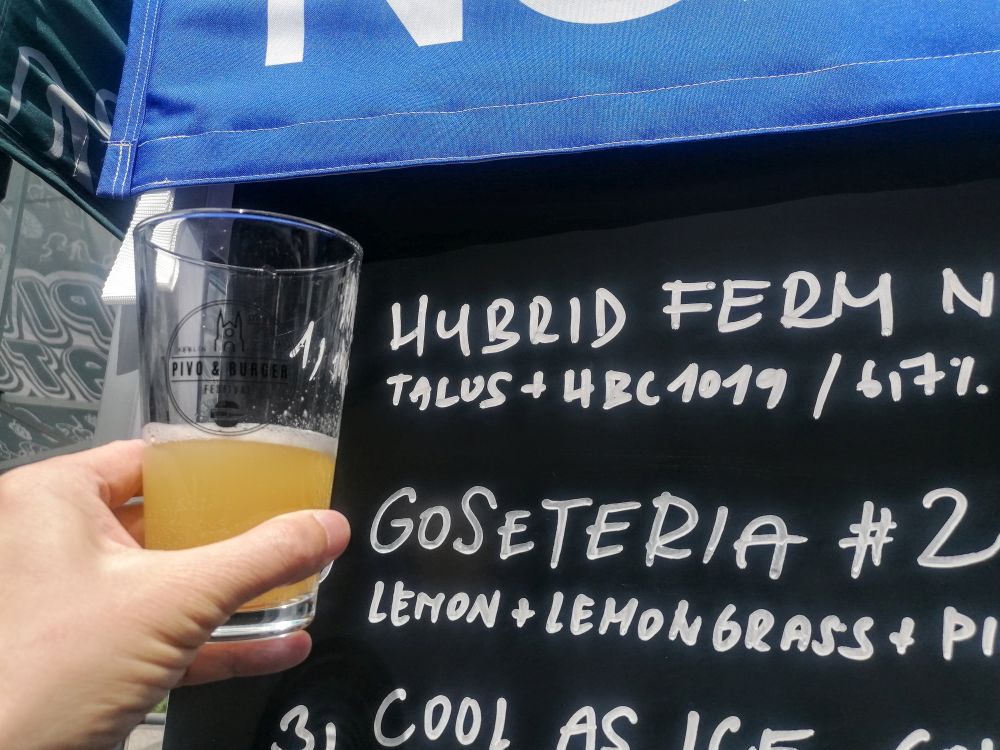 1, HYBRID FERM N
TALUS + HBC1019 / 6,7%.
GOSETERIA #2
LEMON + LEMONGRASS + PI
3, COOL AS ICE
PIVO & BURGER
FESTIVAL